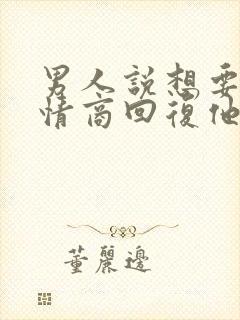 男人說想要
情商回復他
董麗邊